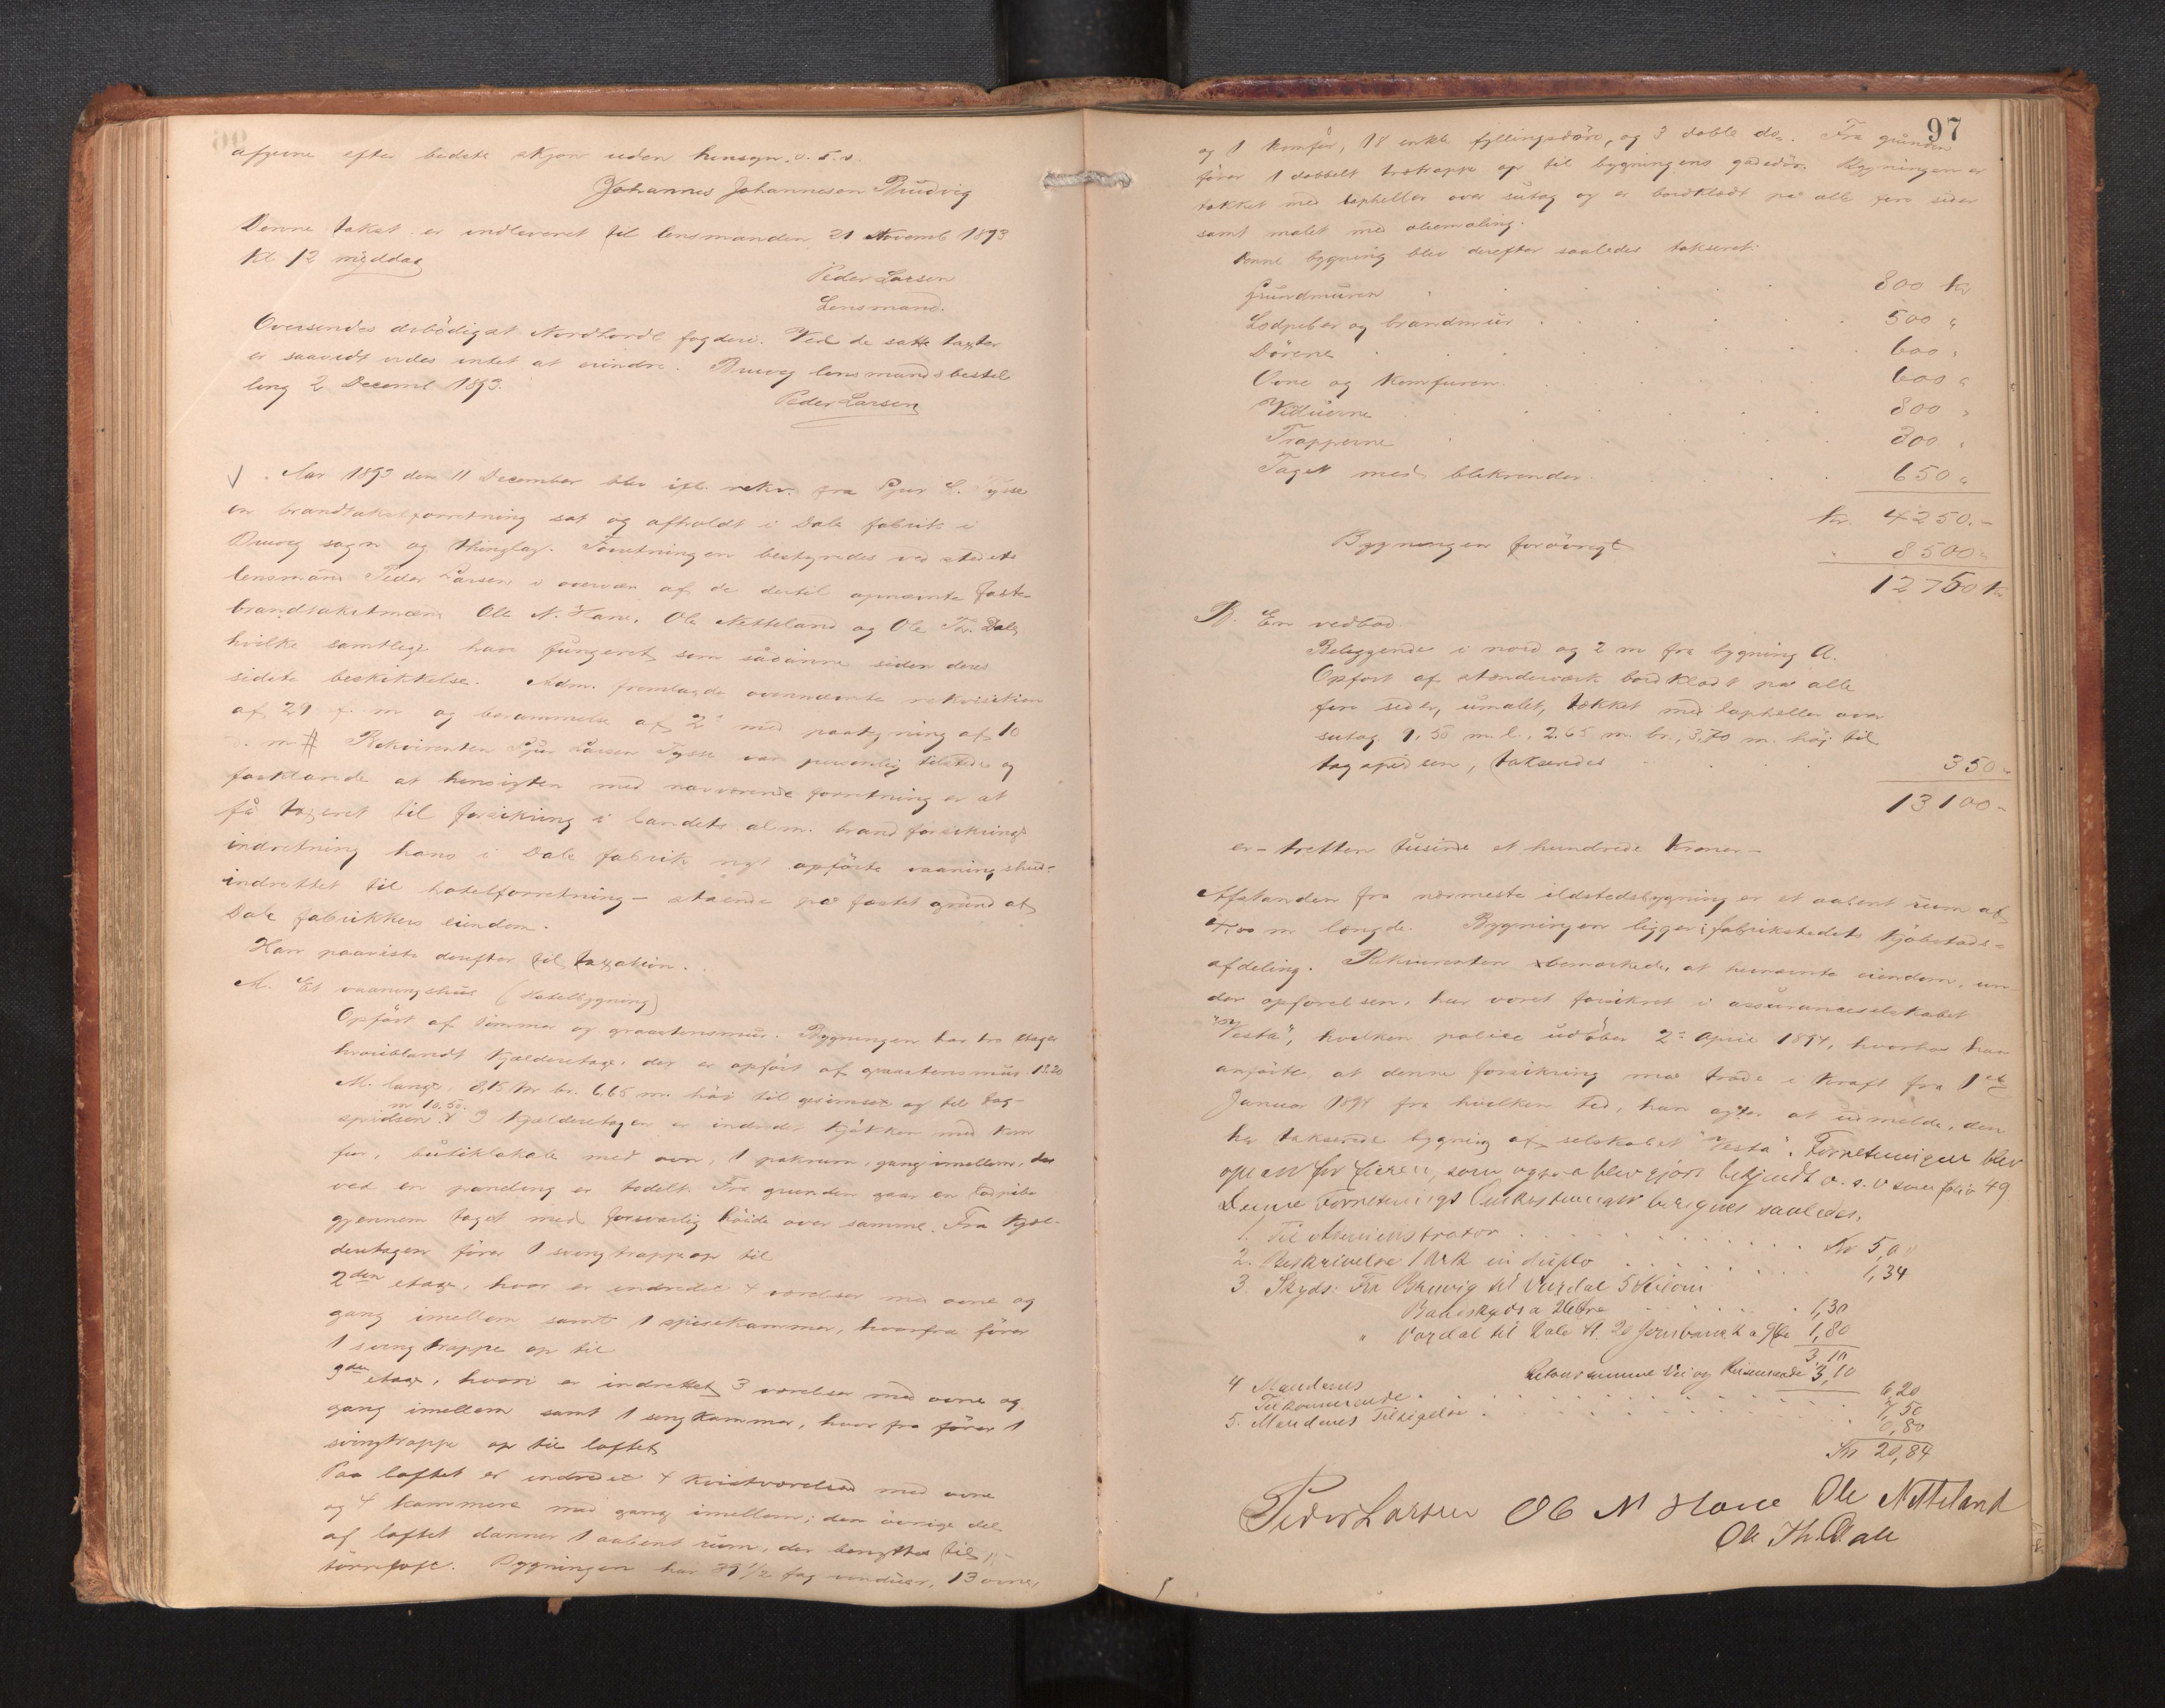 afgivne efter bedste skjøn uden hensyn. o. s. v.
Johannes Johannesen Bruvig
Denne takst er indleveret til lensmanden 21 Novemb 1893
Kl 12 middag
Peder Larsen
Lensmand.
Oversendes ærbödigst Nordhordl fogderi. Ved de satte taxter
er saavidt vides intet at erindre. Bruvig lensmandsbestil
ling 2 Decembr 1893.
Peder Larsen
Aar 1893 den 11 December blev ifl. rekv. fra Sjur L. Tysse
en brandtakstforretning sat og afholdt i Dale fabrik i
Bruvig sogn og thinglag. Forretningen bestyredes ved stedets
lensmand Peder Larsen i overvær af de dertil opnævnte faste
brandtakstmænd Ole N. Hane, Ole Netteland og Ole Th. Dale
hvilke samtlige have fungeret som sådanne siden deres
sidste beskikkelse. Adm. fremlagde ovennævnte rekvisition
af 29 f. m og berammelse af 2 med paategning af 10
d. m # Rekvirenten Sjur Larsen Tysse var personlig tilstede og
forklarede at hensigten med nærværende forretning er at
få taxeret til forsikring i landets alm. brandforsikrings
indretning hans i Dale fabrik nyt opförte vaaningshus
indrettet til hotelforretning – staaende på fæstet grund af
Dale fabrikkers eiendom.
Han paaviste derefter til taxation.
A. Et vaaningshus (Hotelbygning)
Opfört af tömmer og graastensmur. Bygningen har tre etager
hvoriblandt kjælderetage, der er opfört af graastensmur 12.20
M. lang, 8,15 M br. 6.65 m. höi til gesimset og til tag-
m 10.50.
spidsen. I kjælderetagen er indredet kjökken med kom
fur, butiklokale med ovn, 1 pakrum, gang imellem, der
ved en paneling er todelt. Fra grunden gaar en lodpibe
gjennem taget med forsvarlig höide over samme. Fra kjæl-
deretagen förer 1 svingtrappe op til
2den etage, hvor er indredet 4 værelser med ovne og
gang imellem samt 1 spisekammer, hvorfra förer
1 svingtrappe op til
3die etage, hvori er indrettet 3 værelser med ovne og
gang imellem samt 1 sengkammer, hvor fra förer 1
svingtrappe op til loftet
Paa loftet er indredet 4 kvistværelser med ovne
og 4 kammere med gang imellem; den övrige del
af loftet danner 1 aabent rum, der benyttes til
törreloft. Bygningen har 39 1/2 fag vinduer, 13 ovne,
97
og 1 komfür, 18 enkle fyllingsdöre, og 3 doble do. Fra grunden
förer 1 dobbelt trætrappe op til bygningens gadedör. Bygningen er
tækket med tagheller over sutag og er bordklædt på alle fire sider
samt malet med oliemaling.
Denne bygning blev derefter saaledes takseret:
Grundmuren 800 kr
Lodpiber og brandmur 500 "
Dörene 600 "
Ovne og komfuren 600 "
Vinduerne 800 "
Trapperne 300 "
Taget med blikrender 650 "
Kr. 4250.-
Bygningen forövrigt " 8500 "
12750 Kr
B. En vedbod.
Beliggende i nord og 2 m fra bygning A.
Opfört af stenderværk bordklædt på alle
fire sider, umalet, tækket med tagheller over
sutag. 1.50 m. l., 2.65 m. br., 3,70 m. höj til
tagspidsen, takseredes 350 "
13100 -
er – tretten tusinde et hundrede kroner –
Afstanden fra nærmeste ildstedsbygning er et aabent rum af
m længde. Bygningen ligger i fabrikstedets kjøbstads-
afdeling. Rekvirenten bemærkede, at hernævnte eiendom, un-
der opförelsen, har været forsikret i assuranceselskabet
"Vesta", hvilken police udlöber 2 April 1894, hvorhos han
anförte, at denne forsikring må træde i kraft fra 1ste
Januar 1894 fra hvilken tid, han agter at udmelde, den
her takserede bygning af selskabet "Vesta". Forretningen blev
oplæst for Eieren, som ogsaa blev gjort bekjendt o. s. v som folio 49
Denne Forretnings Omkostninger beregnes saaledes.
1. Til Administrator Kr 5,00
2. Beskrivelse 1 Ark in duplo 1,34
3. Skyds: Fra Bruvig til Vardal 5 Kilom
Baadskyds a 26 Øre 1,30
" Vardal til Dale St. 20 Jernbanek a 9 Øre 1,80
3,10
Retour samme Vei og Reisemaade 3,10
6,20
4 Mændenes Tilkommende 7,50
5. Mændenes Tilsigelse 0,80
Kr 20,84
Peder Larsen Ole N Hane Ole Netteland
Ole Th. Dale